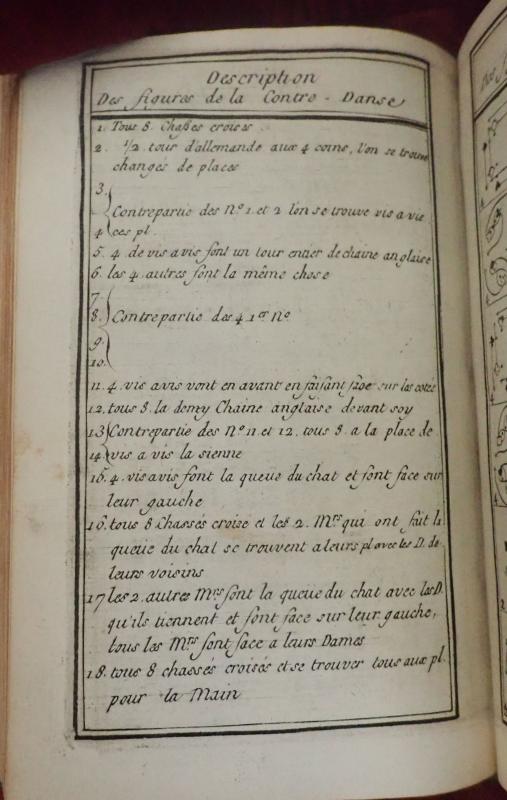 Description
Des figures de la Contre - Danse
1. Tous 8. Chaßes croisés
2. 1/2. tour d'allemande aux 4 coins, l'on se trouve
changés de places
3.
Contrepartie des N.º 1. et 2 l'on se trouve vis a vis
4 ces pl.
5. 4. de vis a vis font un tour entier de chaine anglaise
6. les 4. autres font la même chose
7.
8. Contrepartie des 4. 1.ers Nº
9.
10.
11. 4. vis avis vont en avant en faisant face sur les cotés
12. tous 8. la demy Chaine anglaise devant soy
13 Contrepartie des N.º 11. et 12. tous 8. a la place de
14. vis a vis la sienne
15. 4. vis avis font la queue du chat et font face sur
leur gauche
16. tous 8 Chassés croisé et les 2. M.rs qui ont fait la
queüe du chat se trouvent a leurs pl avec les D. de
leurs voisins
17 les 2. autres M.rs font la queue du chat avec les D.
qu'ils tiennent et font face sur leur gauche,
tous les M.rs font face a leurs Dames
18. tous 8 chassés croisés et se trouver tous aux pl.
pour la Main